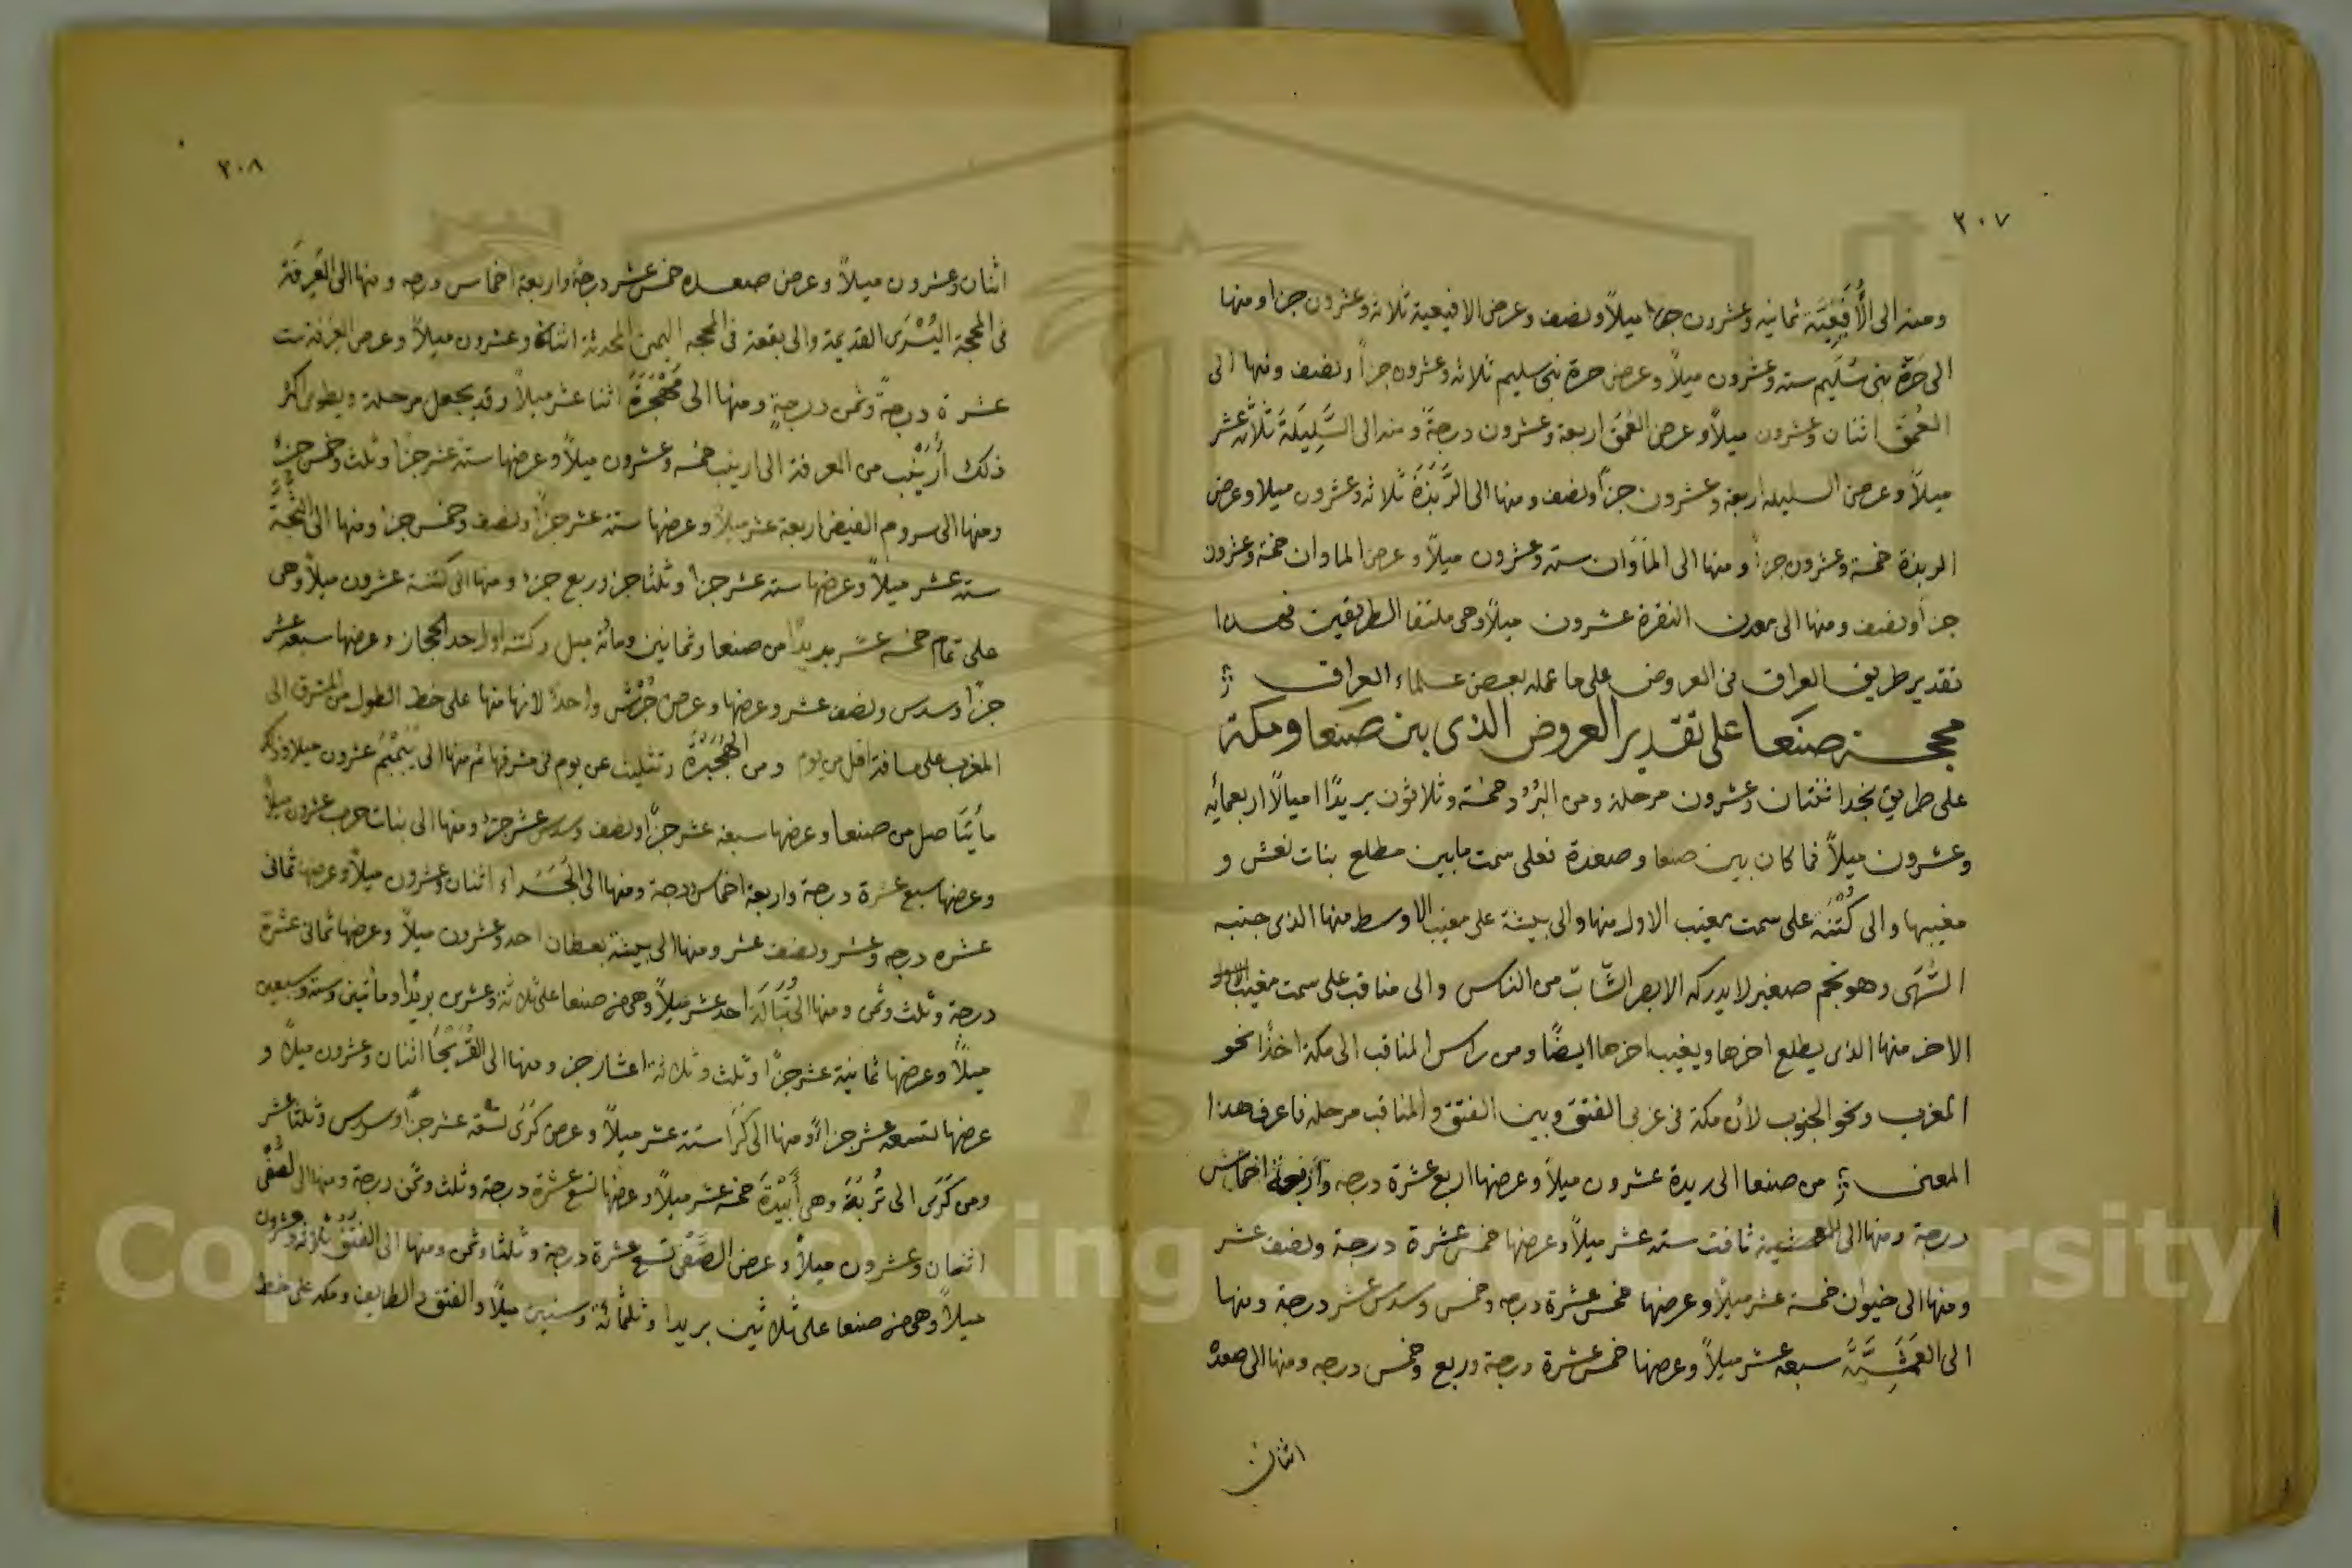 ٢٠٧
ومنه الى الأُفَيْعِيَّة ثمانيه وعشرون ميلاً ونصف وعرض الافيعية ثلاثه وعشرون جزا ومنها
الى حَرّة بنى سُلَيم سته وعشرون ميلاً وعرض حرة بنى سليم ثلاثه وعشرون جزاً ونصف ومنها الى
العُمَق اثنان وعشرون ميلاً وعرض العُمَق اربعة وعشرون درجةً ومنه الى السَّلِيلَة ثلاثه عشر
ميلاً وعرض السليله اربعة وعشرون جزاً ونصف ومنها الى الرَّبَذَة ثلاثه وعشرون ميلا وعرض
الربذة خمسة وعشرون جزاً ومنها الى المَاوَان سته وعشرون ميلاً وعرض الماوان خمسة وعشرون
جزاً ونصف ومنها الى معدن النقرة عشرون ميلاً وهى ملتقا الطريقين فهذا
تقدير طريق العراق فى العروض على ما عمله بعض علماء العراق
محجة صنعا على تقدير العروض الذى بين صنعا ومكة
على طريق نجد اثنتان وعشرون مرحلة ومن البُرُد خمسة وثلاثون بريدًا اميالاً اربعمائه
وعشرون ميلاً فما كان بين صنعا وصعدة فعلى سمت مابين مطلع بنات نعش و
مغيبها والى كُتْنَه على سمت مغيب الاول منها والى بيشة على مغيب الاوسط منها الذى جنبه
السُّهَى وهو نجم صغير لايدركه الا بصر الشّابّ من الناس والى مناقب على سمت مغيب الاول
الاخر منها الذى يطلع اخرها ويغيب اخرها ايضًا ومن راس المناقب الى مكة اخذًا نحو
المغرب ونحو الجنوب لأن مكة فى غربى الفتق وبين الفتق والمناقب مرحلة فاعرف هذا
المعنى من صنعا الى ريدة عشرون ميلاً وعرضها اربع عشرة درجه واربعة اخماس
درجة ومنها الى ثافت سته عشر ميلاً وعرضها خمس عشرة درجة ونصف عشر
ومنها الى خيوان خمسة عشر ميلاً وعرضها خمس عشرة درجه وخمس وسدس عشر درجة ومنها
الى العَمَشِيَّة سبعه عشر ميلاً وعرضها خمس عشرة درجة وربع وخمس درجه ومنها الى صعده
اثنان
٢٠٨
اثنان وعشرون ميلاً وعرض صعده خمس عشر درجة واربعة اخماس درجه ومنها الى العَرِفَة
فى المحجة اليُسْرَى القديمة والى بقعة فى المحجه اليمنى المحدثة اثنان وعشرون ميلاً وعرض العرفة ست
عشرة درجةً وثمن درجةٍ ومنها الى مَهْجَرَةَ اثنا عشر ميلاً وقد يجعل مرحلة ويطوى اكثر
ذلك أُرَيْنِب من العرفة الى ارينب خمسه وعشرون ميلاً وعرضها ستة عشر جزاً وثلث وخمس جزء
ومنها الى سروم الفيض اربعة عشر ميلاً وعرضها ستة عشر جزاً ونصف وخمس جزء ومنها الى الثُّجَّة
ستة عشر ميلاً وعرضها ستة عشر جزاً وثلثا جزء وربع جزء ومنها الى كتنة عشرون ميلاً وهى
على تمام خمسه عشر بريدًا من صنعا وثمانين ومائة ميل وكتنة اول حد الحجاز وعرضها سبعه عشر
جزاً وسدس ونصف عشر وعرضها وعرض جُرَش واحدٌ لانها منها على خط الطول من المشرق الى
المغرب على مسافة اقل من يوم ومن الهُجَيْرَة وتثليث عن يوم فى شرقها ثم منها الى يَبَمْبَم عشرون ميلا وذلك
مأيتا ميل من صنعا وعرضها سبعه عشر جزاً ونصف وسدس عشر جزء ومنها الى بنات حرب عشرون ميلاً
وعرضها سبع عشرة درجة واربعة اخماس درجة ومنها الى الجَسَداء اثنان وعشرون ميلاً وعرضها ثمانى
عشره درجه وعشر ونصف عشر ومنها الى بيشة بعطان احد وعشرون ميلاً وعرضها ثمانى عشرة
درجة وثلث وثمن ومنها الى تُبَالَة احد عشر ميلاً وهى من صنعا على ثلاثة وعشرين بريدًا ومأتين وستة وسبعين
ميلاً وعرضها ثمانية عشر جزاً وثلث وثلاثة اعشار جزء ومنها الى القُرَيْحَا اثنان وعشرون ميلاً و
عرضها تسعه عشر جزاءً ومنها الى كَرَا ستة عشر ميلاً وعرض كَرَى تسعة عشر جزاً وسدس وثلثا عشر
ومن كَرَى الى تُرَبَةَ وهى أَبِيْدَة خمسة عشر ميلاً وعرضها تسع عشرة درجة وثلث وثمن درجة ومنها الى الصُّفْن
اثنان وعشرون ميلاً وعرض الصَّفْن تسع عشرة درجة وثلثا وثمن ومنها الى الفُتُق ثلاثة وعشرون
ميلاً وهى من صنعا على ثلاثين بريدا وثلثمائة وستين ميلاً والفتق والطايف ومكه على خط
Copyright © King Saud University